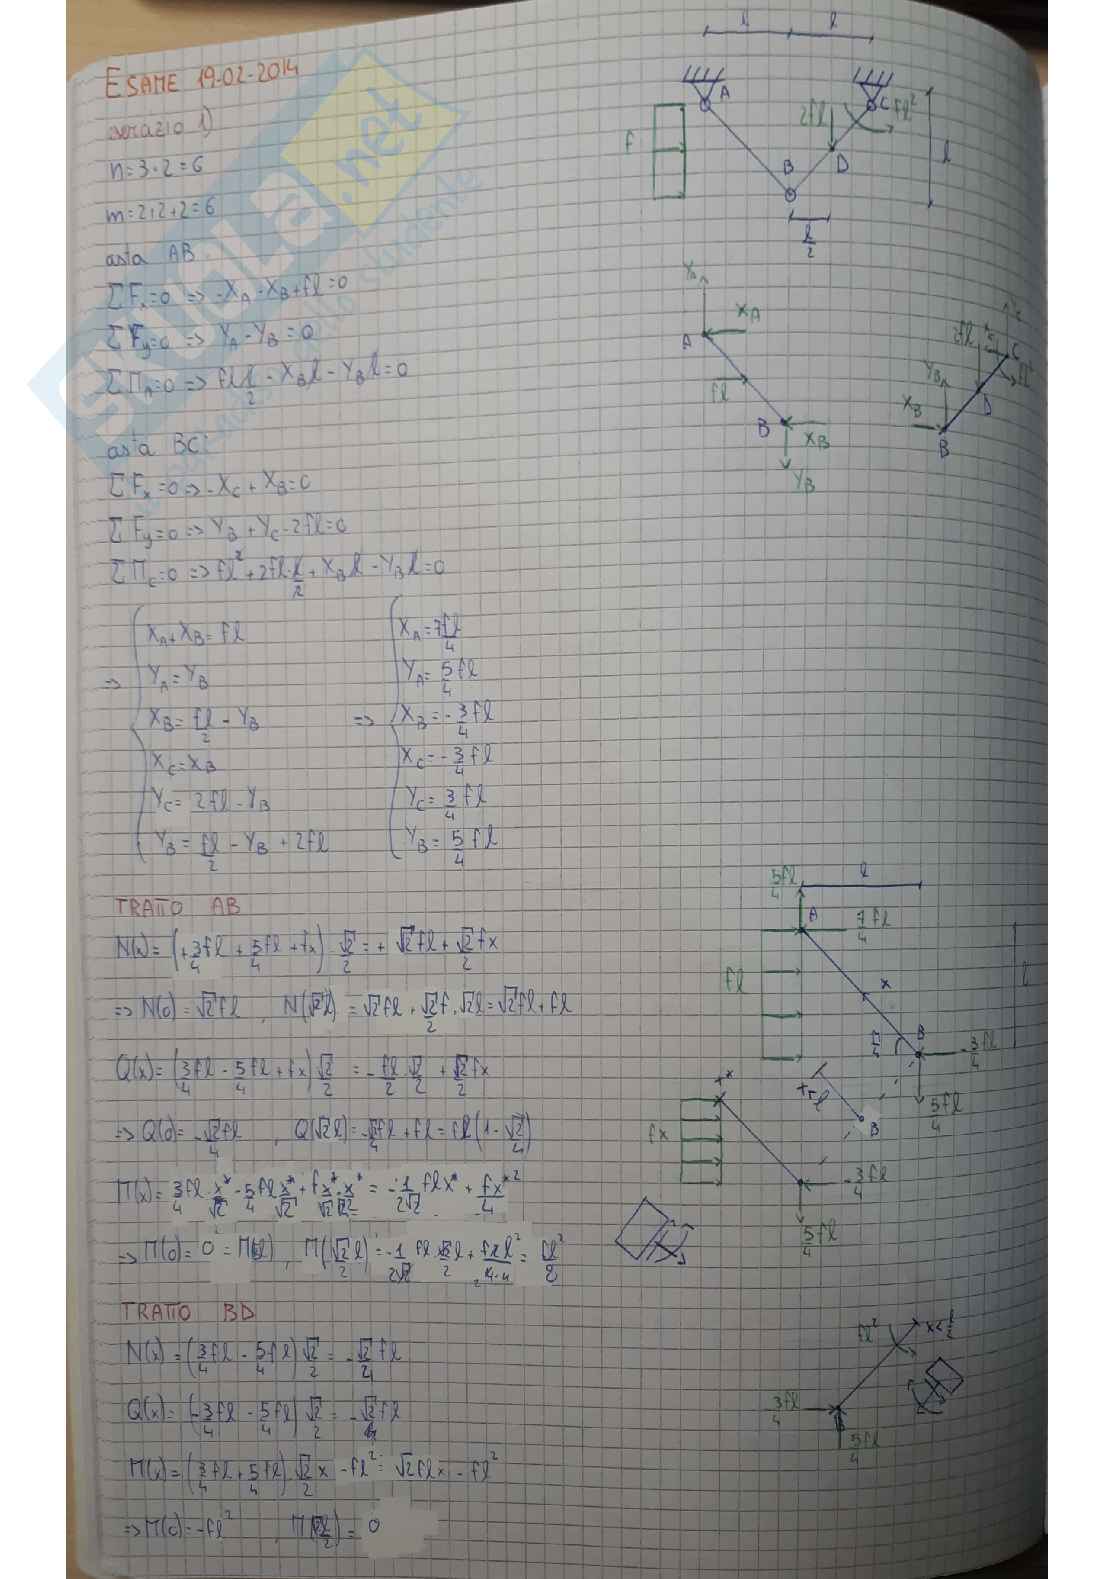 ESAME 19-02-2014
esercizio 1)
n=3·2=6
m=2+2+2=6
asta AB
ΣFx=0 => -XA-XB+fl=0
ΣFy=0 => YA-YB=0
ΣMA=0 => fl l/2 - XBl - YBl=0
asta BC:
ΣFx=0 => -XC+XB=0
ΣFy=0 => YB+YC-2fl=0
ΣMC=0 => fl²+2fl·l/2+XBl-YBl=0
XA+XB=fl
=> YA=YB
XB=fl/2-YB
XC=XB
YC=2fl-YB
YB=fl/2-YB+2fl
XA=7fl/4
YA=5fl/4
=> XB=-3/4fl
XC=-3/4fl
YC=3/4fl
YB=5/4fl
TRATTO AB
N(x)=(+3/4fl+5/4fl+fx)·√2/2=+√2fl+√2/2fx
=> N(0)=√2fl, N(√2l)=√2fl+√2/2f·√2l=√2fl+fl
Q(x)=(3/4fl-5/4fl+fx)√2/2=-fl/2·√2/2+√2/2fx
=> Q(0)=-√2/4fl, Q(√2l)=-√2/4fl+fl=fl(1-√2/4)
M(x)=3/4fl·x*/√2-5/4fl x*/√2+f x*/√2·x*/√2 2=-1/2√2flx*+fx*²/4
=> M(0)=0=M(l), M(√2/2l)=
TRATTO BD
N(x)=(3/4fl-5/4fl)√2/2=-√2/4fl
Q(x)=(-3/4fl-5/4fl)√2/2=-√2fl
M(x)=(3/4fl+5/4fl)·√2/2x-fl²=√2flx-fl²
=> M(0)=-fl², =0
l
l
A
C
2fl
fl²
f
B
D
l
l/2
YA
XA
A
fl
B
XB
YB
2fl
C
fl²
YB
D
XB
B
5fl/4
l
A
7/4fl
fl
x
B
π/4
-3/4fl
5fl/4
x*
l
B
fx
-3/4fl
5/4fl
fl²
x<l/2
3fl/4
5fl/4
SKUOLA.net